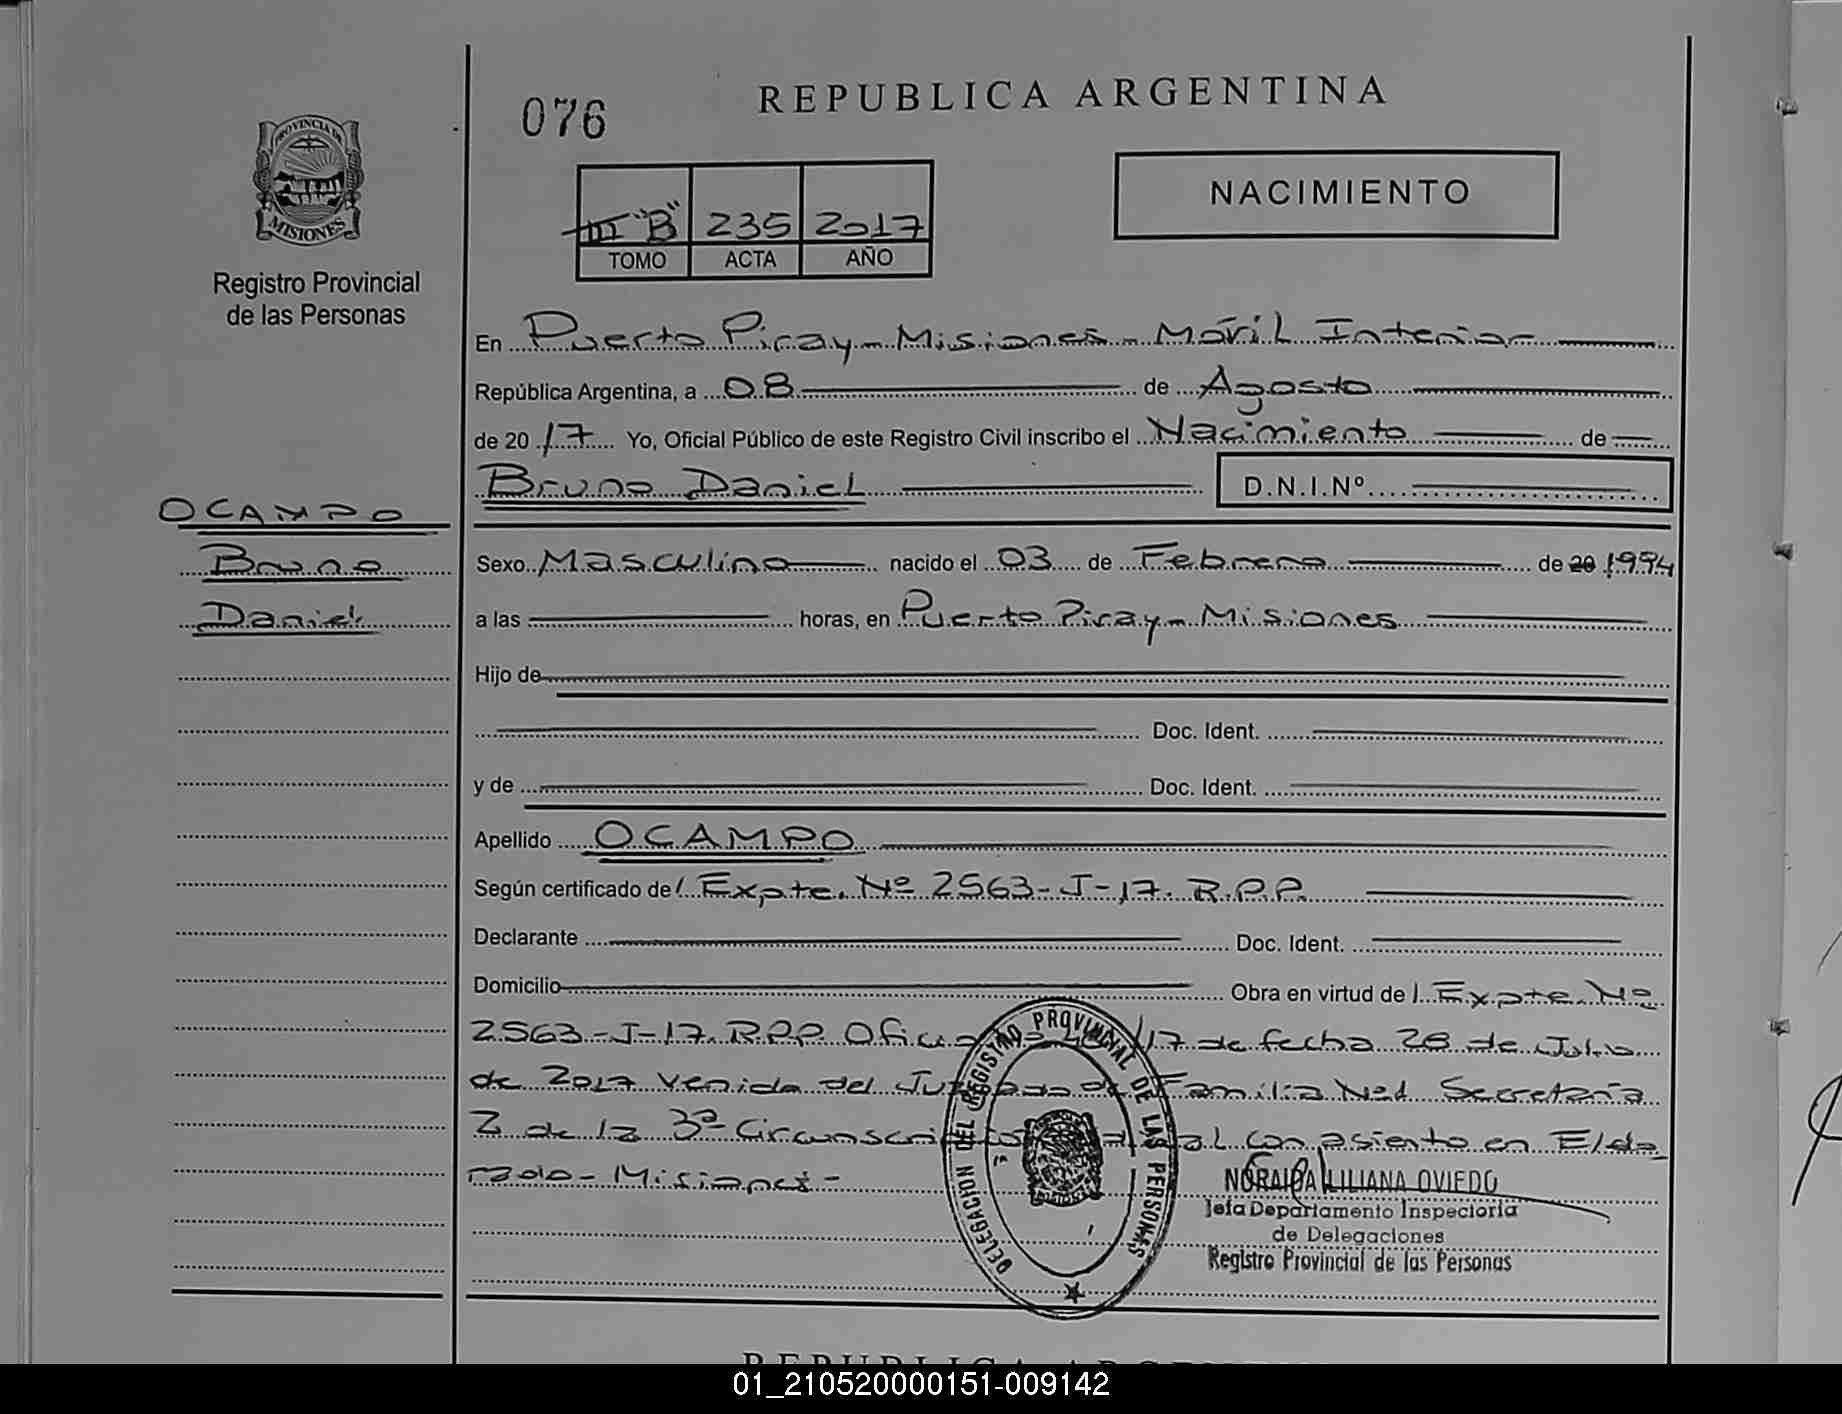 REPUBLICA ARGENTINA
076
NACIMIENTO
PROVINCIA DE
MISIONES
Registro Provincial
de las Personas
III "B" 235 2017
TOMO ACTA AÑO
En Puerto Piray - Misiones - Móvil Interior
República Argentina, a 08 de Agosto
de 2017 Yo, Oficial Público de este Registro Civil inscribo el Nacimiento de
Bruno Daniel D.N.I.Nº
OCAMPO
Bruno
Daniel
Sexo Masculino nacido el 03 de Febrero de 20 1994
a las horas, en Puerto Piray - Misiones
Hijo de
Doc. Ident.
y de Doc. Ident.
Apellido OCAMPO
Según certificado de / Expte. Nº 2563-J-17. R.P.P.
Declarante Doc. Ident.
Domicilio Obra en virtud de / Expte. Nº
2563-J-17. R.P.P. /17 de fecha 28 de Julio
de 2017 venida del Juzgado de Familia Nº1 Secretaría
2 de la 3ª con asiento en Eldo
rado - Misiones -
DELEGACION DEL REGISTRO PROVINCIAL DE LAS PERSONAS
NORAIDA LILIANA OVIEDO
Jefa Departamento Inspectoria
de Delegaciones
Registro Provincial de las Personas
REPUBLICA ARGENTINA
01_210520000151-009142